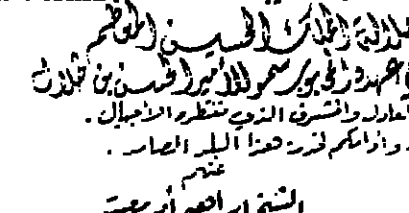 جلالة الملك الحسين المعظم
عهده المحبوب سمو الأمير الحسن بن طلال
العادل والمشرف الذي تنتظره الأجيال .
وأدامكم لهذا البلد الصامد .
عنهم
الشيخ ابراهيم أبو